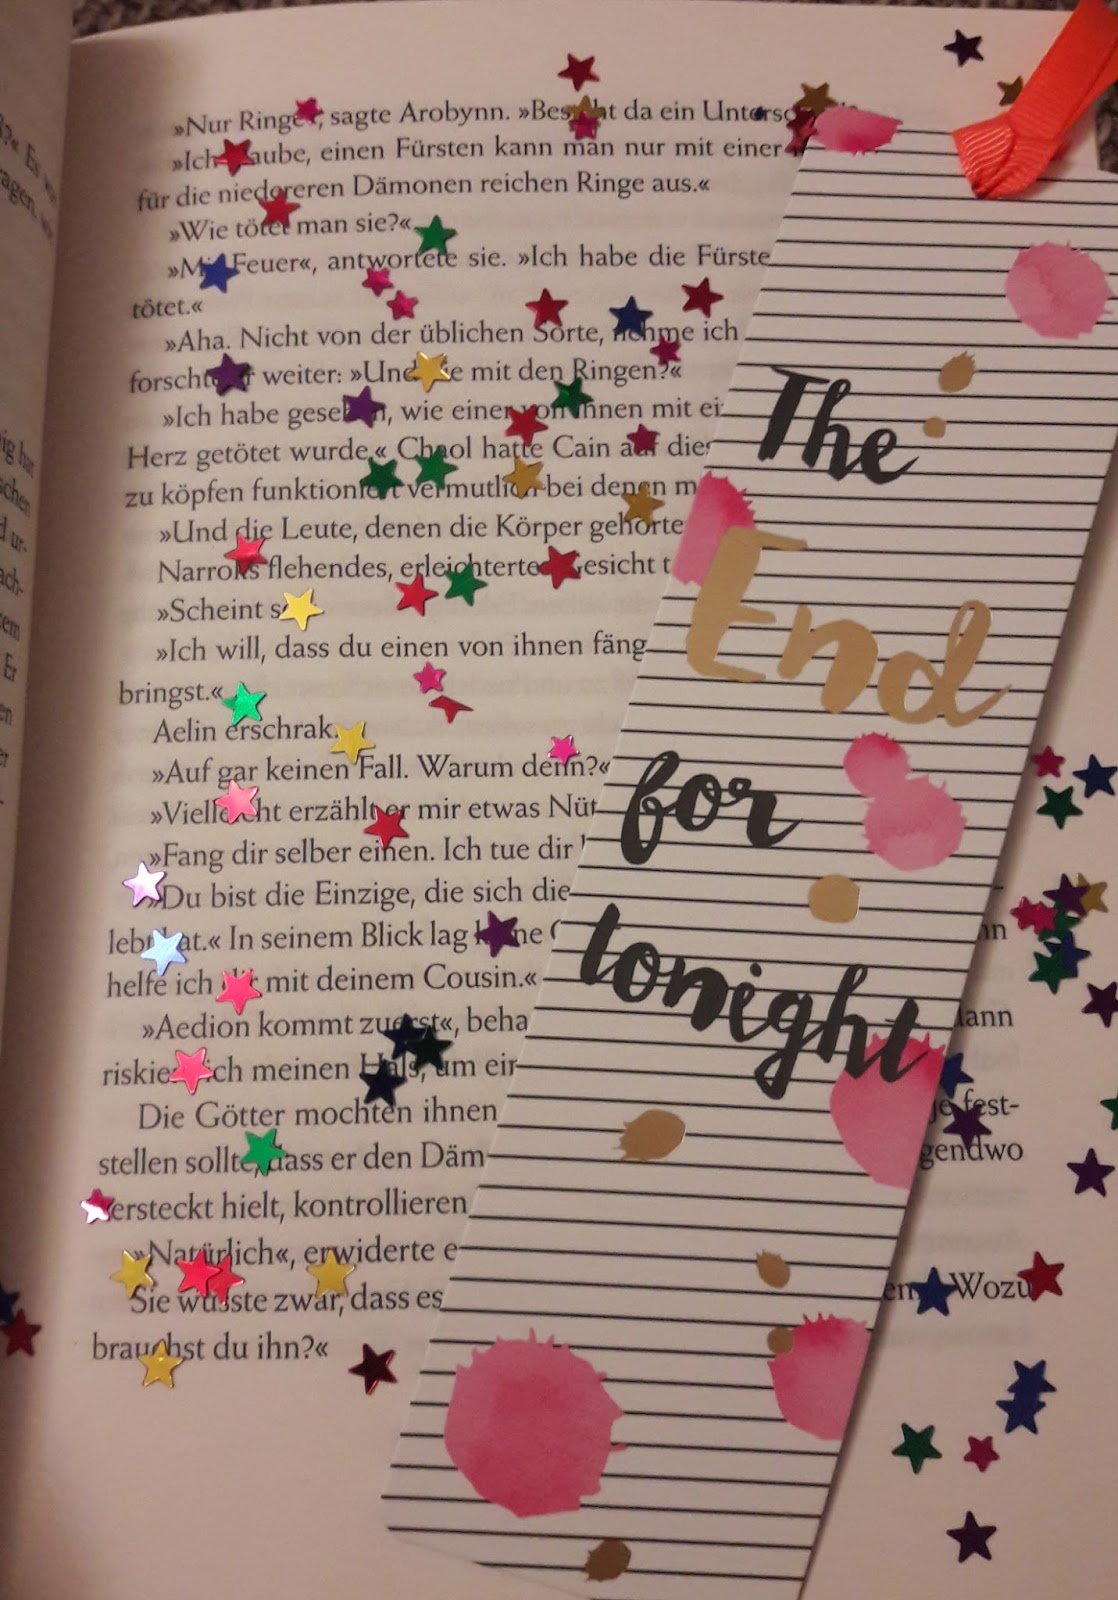 »Nur Ringe«, sagte Arobynn. »Besteht da ein
»Ich glaube, einen Fürsten kann man nur mit einer
für die niedereren Dämonen reichen Ringe aus.«
»Wie tötet man sie?«
»Mit Feuer«, antwortete sie. »Ich habe die
tötet.«
»Aha. Nicht von der üblichen Sorte, nehme ich
forschte er weiter: »Und die mit den Ringen?«
»Ich habe gesehen, wie einer von ihnen mit
Herz getötet wurde.« Chaol hatte Cain auf
zu köpfen funktioniert vermutlich bei denen
»Und die Leute, denen die Körper gehörten
Narroks flehendes, erleichtertes Gesicht
»Scheint so.
»Ich will, dass du einen von ihnen
bringst.«
Aelin erschrak.
»Auf gar keinen Fall. Warum denn?«
»Vielleicht erzählt er mir etwas
»Fang dir selber einen. Ich tue dir
»Du bist die Einzige, die sich
lebt hat.« In seinem Blick lag keine
helfe ich dir mit deinem Cousin.«
»Aedion kommt zuerst«,
riskiere ich meinen Hals, um
Die Götter mochten ihnen
je fest-
stellen sollte, dass er den
versteckt hielt, kontrollieren
»Natürlich«, erwiderte
Sie wusste zwar, dass es
Wozu
brauchst du ihn?«
The
End
for
tonight